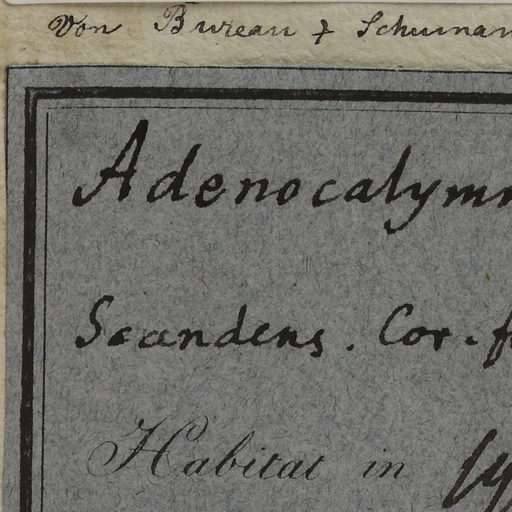 Von Bureau & Schuman
Adenocalym
Scandens. Cor. f
Habitat in